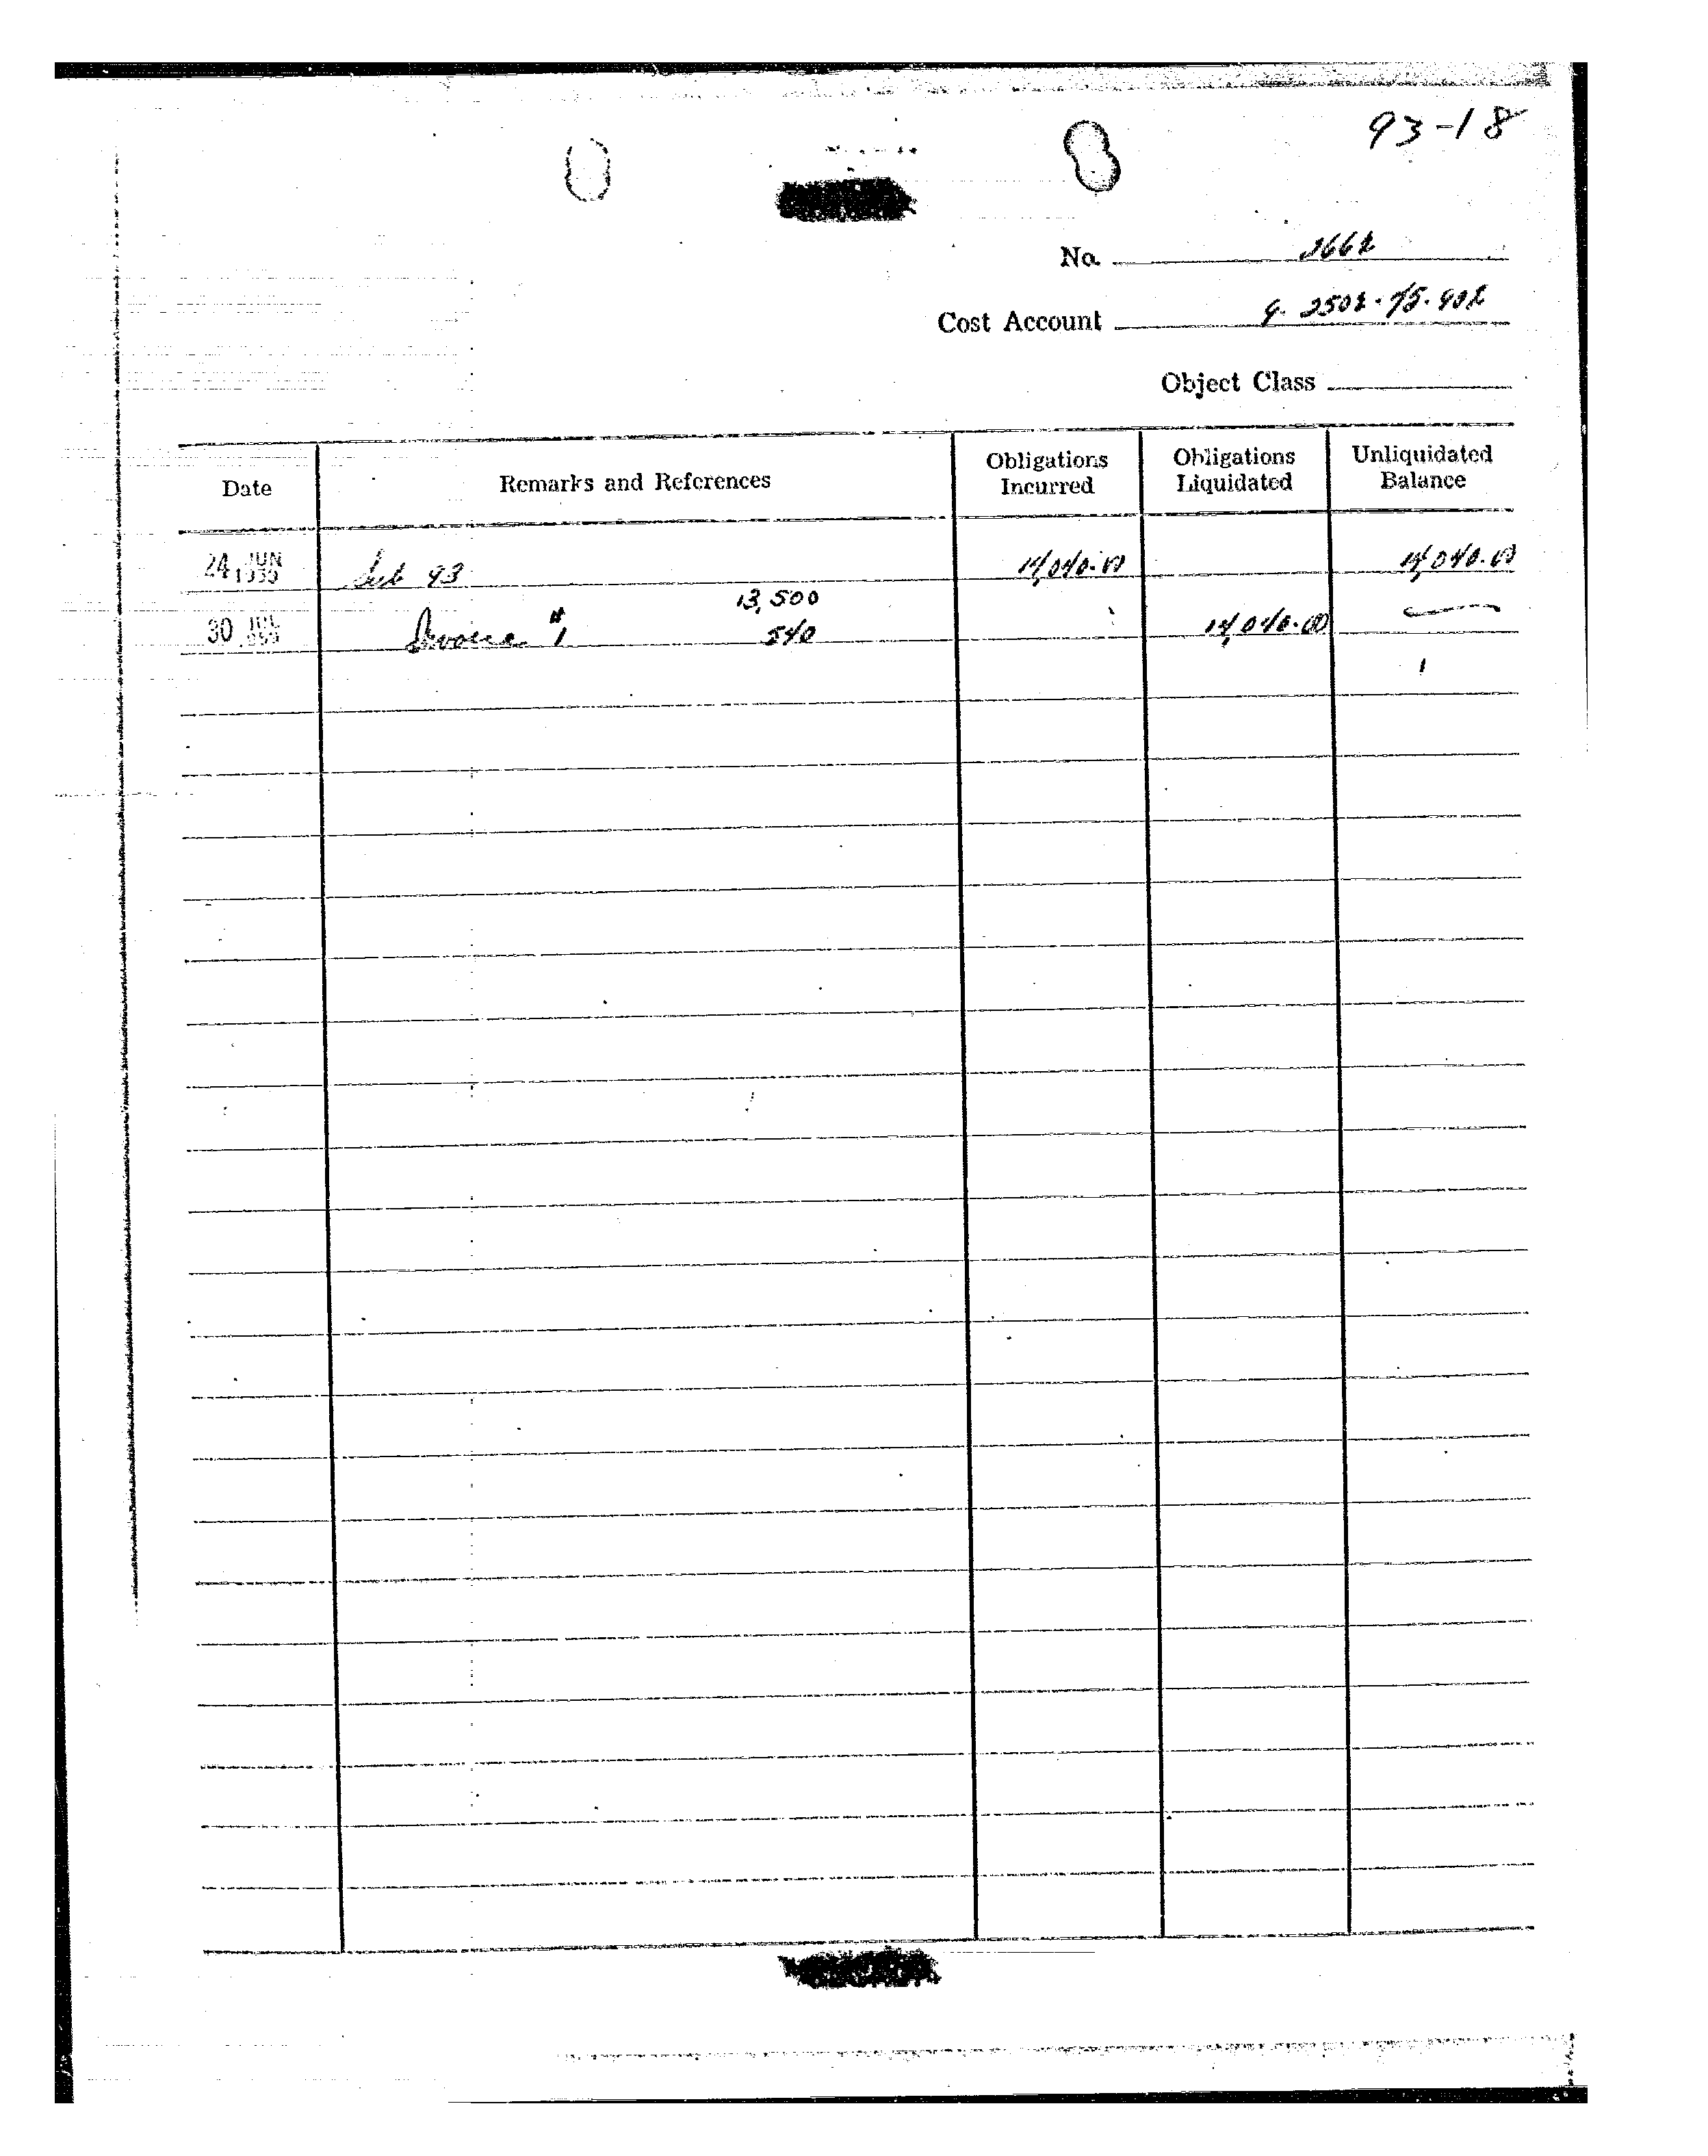 93-18
No. 2662
Cost Account 9-2502-75-902
Object Class
Date
Remarks and References
Obligations Incurred
Obligations Liquidated
Unliquidated Balance
24 JUN Sub 93 14,040.00 14,040.00
13,500
30 JUL Invoice #1 540 14,040.00